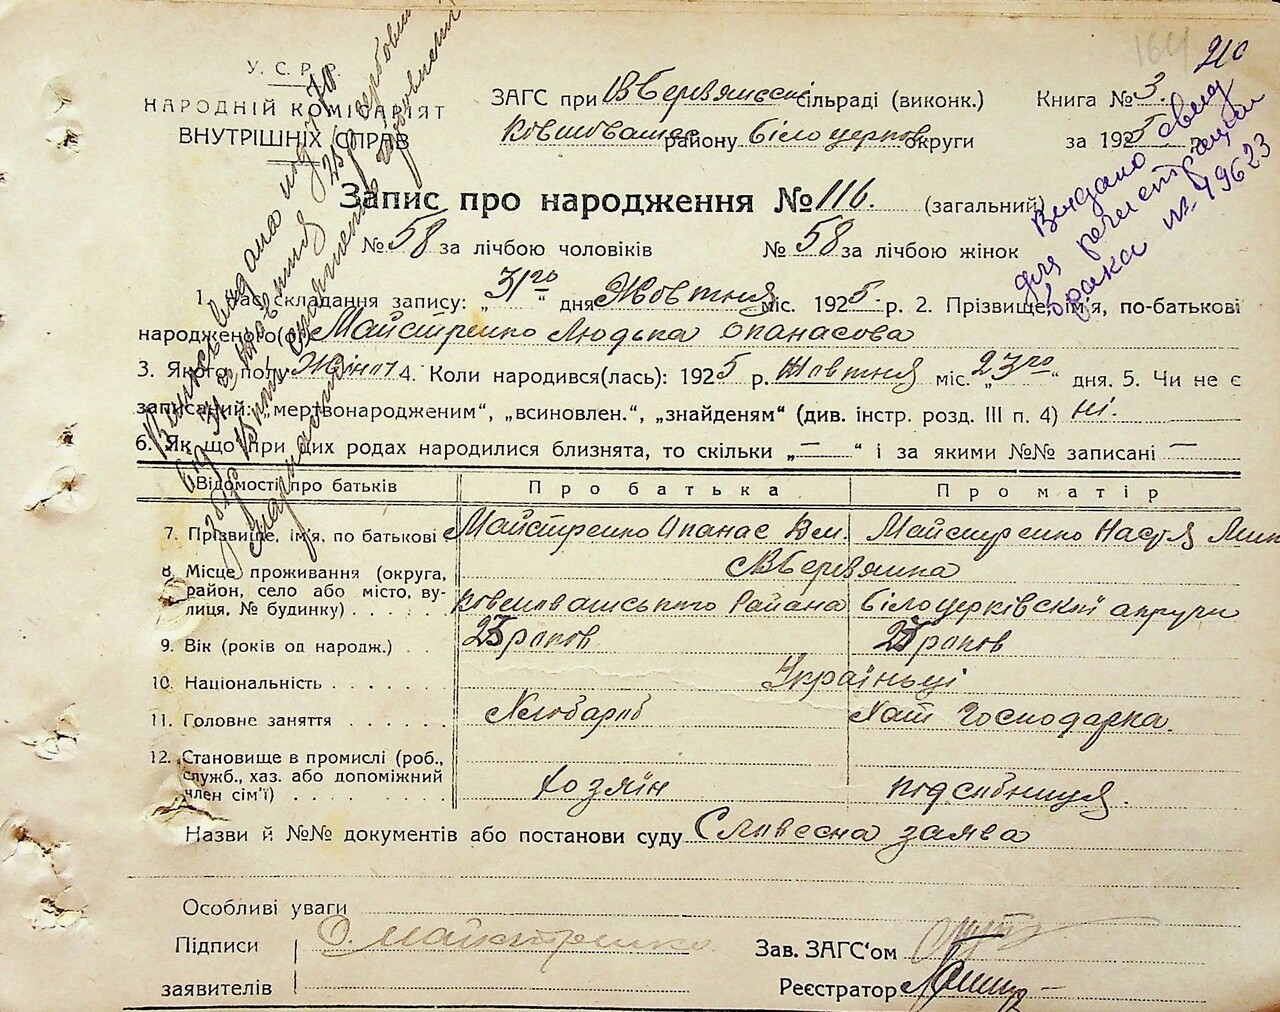 164 210
У. С. Р. Р.
НАРОДНІЙ КОМІСАРІЯТ
ВНУТРІШНІХ СПРАВ
ЗАГС при сільраді (виконк.)
району Білоцерков округи
Книга № 3.
за 1925 р.
Видано
для регистрации
брака № 49623
Запис про народження № 116. (загальний)
№ 58 за лічбою чоловіків № 58 за лічбою жінок
1. Час складання запису: „31го“ дня Жовтня міс. 1925 р. 2. Прізвище, ім'я, по-батькові
народженого(ої) Майстренко Людька Опанасова
3. Якого полу Жіноч 4. Коли народився(лась): 1925 р. Жовтня міс. „23го“ дня. 5. Чи не є
записаний: „мертвонародженим“, „всиновлен.“, „знайденям“ (див. інстр. розд. III п. 4) ні.
6. Як що при цих родах народилися близнята, то скільки „—“ і за якими №№ записані —
Відомості про батьків Про батька Про матір
7. Прізвище, ім'я, по батькові Майстренко Опанас Майстренко Настя
8. Місце проживання (округа,
район, село або місто, ву-
лиця, № будинку) Района Білоцерківскої округи
9. Вік (років од народж.) 25 роков 25 роков
10. Національність Україньці
11. Головне заняття Хлібороб Хат Господарка.
12. Становище в промислі (роб.,
служб., хаз. або допоміжний
член сім'ї) Хозяїн подсобниця.
Назви й №№ документів або постанови суду Словесна заява
Особливі уваги
Підписи О. Майстренко Зав. ЗАГС'ом
заявителів Реєстратор